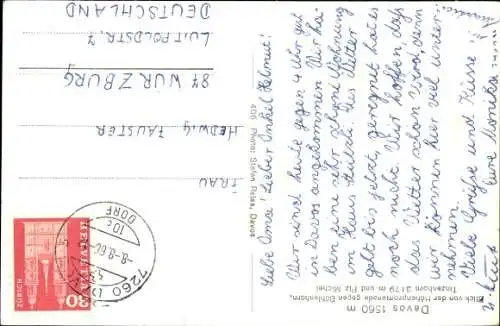 Liebe Oma! Lieber Onkel Helmut!
Wir sind heute gegen 4 Uhr gut
in Davos angekommen. Wir ha-
ben eine sehr schöne Wohnung
im Haus Das Wetter
geht bis jetzt, geregnet hat es
noch nicht. Wir hoffen, daß
das Wetter schön wird, denn
wir können hier viel unter-
nehmen.
Viele Grüße und Küsse
Eure Monika
Davos 1560 m
Blick von der Höhenpromenade gegen Bühlenhorn,
Tinzenhorn 3179 m und Piz Michel
406 Photo: Stefan Relas, Davos
FRAU
HEDWIG FAUSTER
87 WÜRZBURG
LUITPOLDSTR. 7
DEUTSCHLAND
HELVETIA
30
7260 DAVOS
DORF